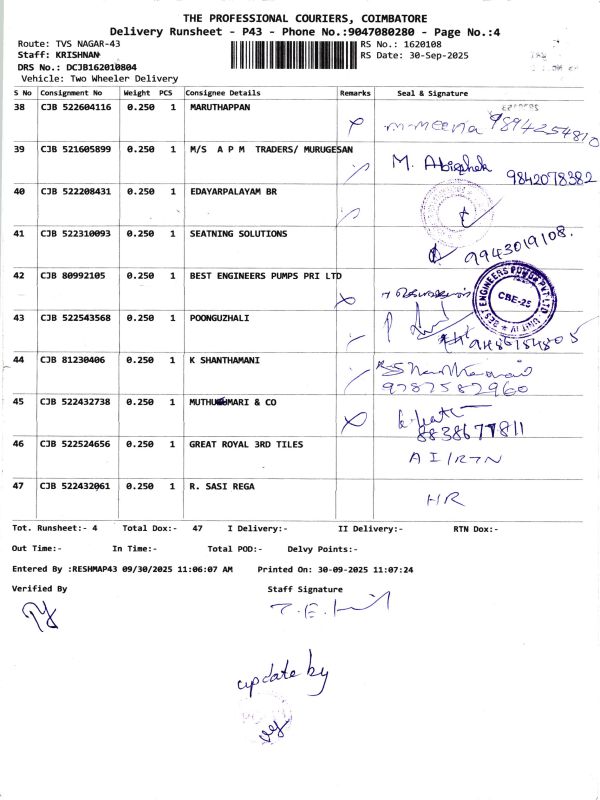 THE PROFESSIONAL COURIERS, COIMBATORE
Delivery Runsheet - P43 - Phone No.:9047080280 - Page No.:4
Route: TVS NAGAR-43 RS No.: 1620108
Staff: KRISHNAN RS Date: 30-Sep-2025
DRS No.: DCJB162010804
Vehicle: Two Wheeler Delivery
S No Consignment No Weight PCS Consignee Details Remarks Seal & Signature
38 CJB 522604116 0.250 1 MARUTHAPPAN
m-meena 9894254810
39 CJB 521605899 0.250 1 M/S A P M TRADERS/ MURUGESAN
M. Abishek 9842078382
40 CJB 522208431 0.250 1 EDAYARPALAYAM BR
41 CJB 522310093 0.250 1 SEATNING SOLUTIONS
9943019108.
42 CJB 80992105 0.250 1 BEST ENGINEERS PUMPS PRI LTD
BEST ENGINEERS PUMPS PVT LTD - UNIT IV
CBE-25
43 CJB 522543568 0.250 1 POONGUZHALI
44 CJB 81230406 0.250 1 K SHANTHAMANI
9787582960
45 CJB 522432738 0.250 1 MUTHUKUMARI & CO
8838677811
46 CJB 522524656 0.250 1 GREAT ROYAL 3RD TILES
A I / RTN
47 CJB 522432061 0.250 1 R. SASI REGA
HR
Tot. Runsheet:- 4 Total Dox:- 47 I Delivery:- II Delivery:- RTN Dox:-
Out Time:- In Time:- Total POD:- Delvy Points:-
Entered By :RESHMAP43 09/30/2025 11:06:07 AM Printed On: 30-09-2025 11:07:24
Verified By Staff Signature
update by